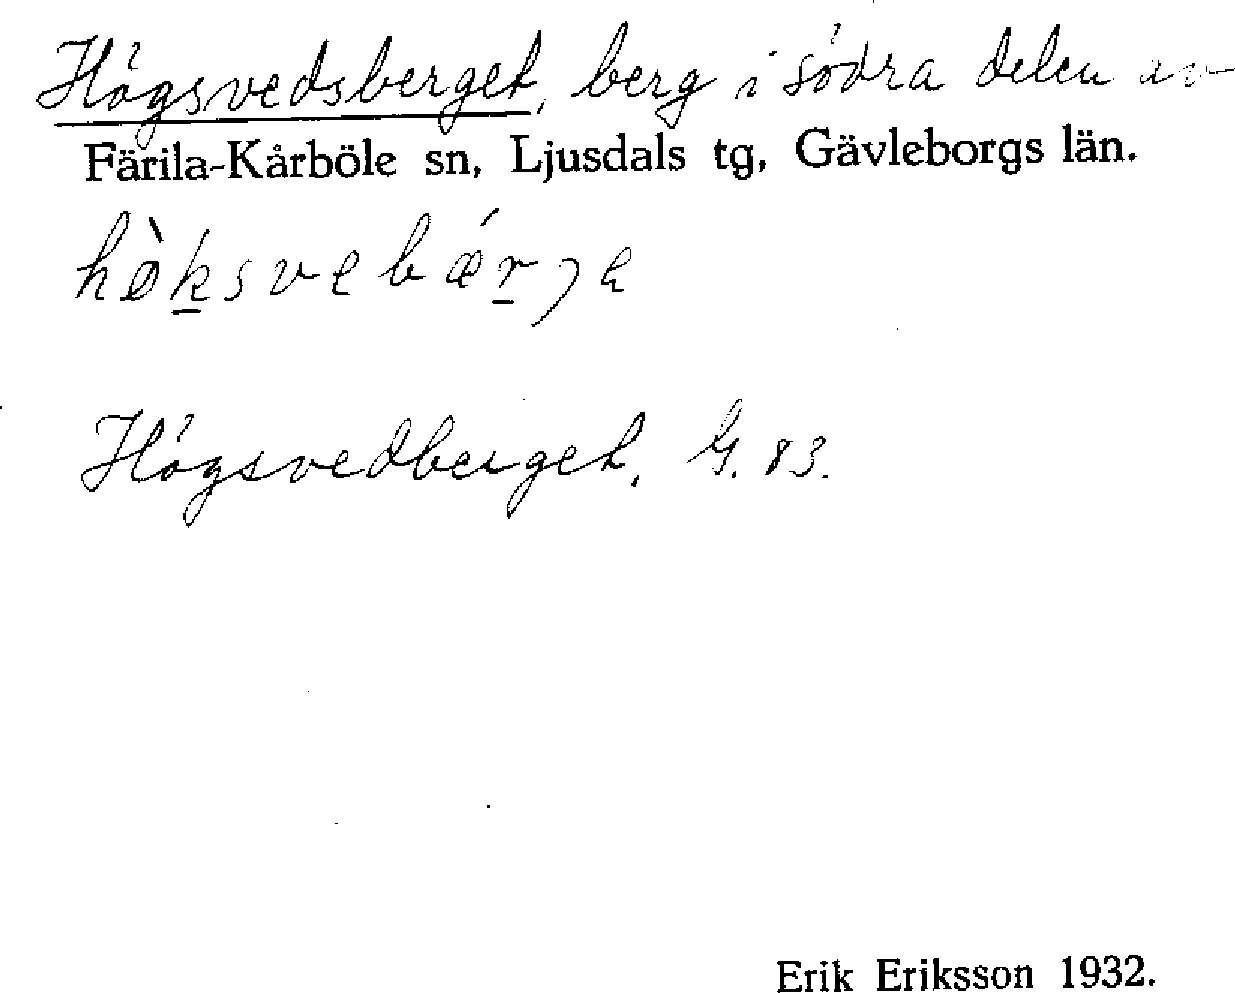 Högsvedsberget, berg i södra delen av
Färila-Kårböle sn, Ljusdals tg, Gävleborgs län.
hø̀ksvebǽrɟa
Högsvedberget. G. 83.
Erik Eriksson 1932.